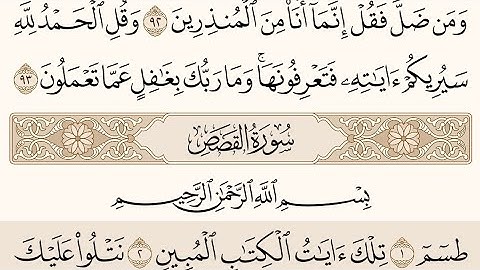 وَمَن ضَلَّ فَقُلْ إِنَّمَآ أَنَا۠ مِنَ ٱلْمُنذِرِينَ ٩٢ وَقُلِ ٱلْحَمْدُ لِلَّهِ
سَيُرِيكُمْ ءَايَٰتِهِۦ فَتَعْرِفُونَهَا ۚ وَمَا رَبُّكَ بِغَٰفِلٍ عَمَّا تَعْمَلُونَ ٩٣
سُورَةُ القَصَصِ
بِسْمِ ٱللَّهِ ٱلرَّحْمَٰنِ ٱلرَّحِيمِ
طسٓمٓ ١ تِلْكَ ءَايَٰتُ ٱلْكِتَٰبِ ٱلْمُبِينِ ٢ نَتْلُوا۟ عَلَيْكَ